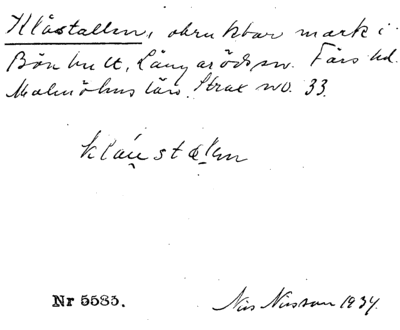 Klåstallen, obrukbar mark i
Bönhult, Långaröds sn. Färs hd.
Malmöhus län. Strax no. 33.
klåustalen
Nr 5583. Nils Nilsson 1934.